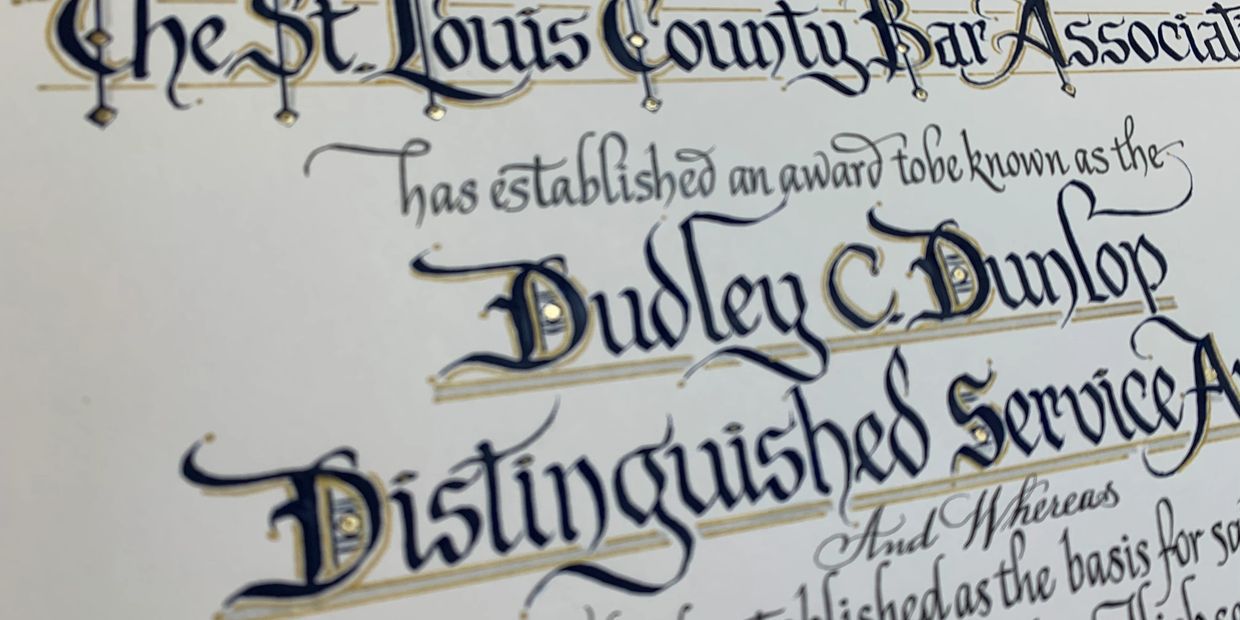 The St. Louis County Bar Associati
has established an award to be known as the
Dudley C. Dunlop
Distinguished Service A
And Whereas
established as the basis for sa